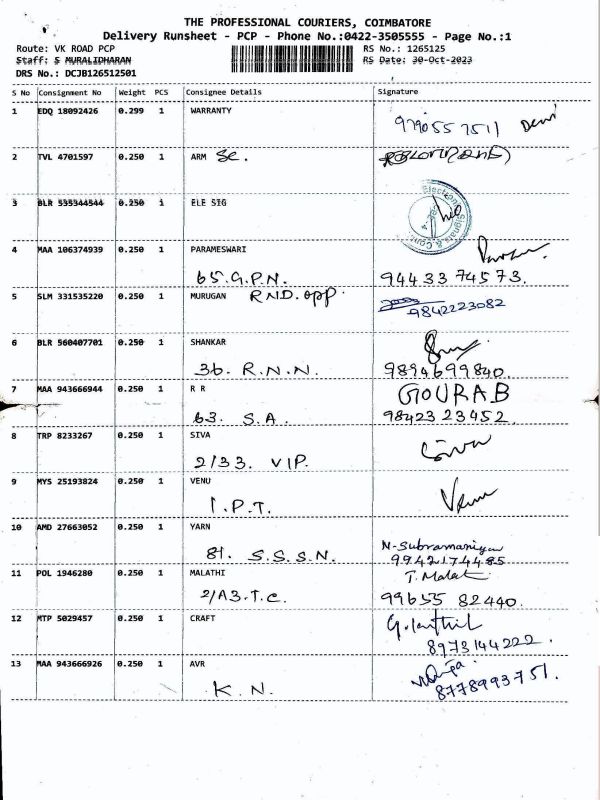 THE PROFESSIONAL COURIERS, COIMBATORE
Delivery Runsheet - PCP - Phone No.:0422-3505555 - Page No.:1
Route: VK ROAD PCP RS No.: 1265125
Staff: S MURALIDHARAN RS Date: 30-Oct-2023
DRS No.: DCJB126512501
S No Consignment No Weight PCS Consignee Details Signature
1 EDQ 18092426 0.299 1 WARRANTY
9790557511 Devi
2 TVL 4701597 0.250 1 ARM SC.
3 BLR 535344544 0.250 1 ELE SIG
4 MAA 106374939 0.250 1 PARAMESWARI
65. G.P.N. 94433 74573.
5 SLM 331535220 0.250 1 MURUGAN R.N.D. opp.
9842223082
6 BLR 560407701 0.250 1 SHANKAR
36. R.N.N. 9894699840.
7 MAA 943666944 0.250 1 R R GOURAB
63. S.A. 98423 23452.
8 TRP 8233267 0.250 1 SIVA Siva
2/33. VIP.
9 MYS 25193824 0.250 1 VENU
1.P.T.
10 AMD 27663052 0.250 1 YARN
81. S.S.S.N. N-Subramaniyan
9942174485
11 POL 1946280 0.250 1 MALATHI T. Malat
2/A3.T.C. 99655 82440.
12 MTP 5029457 0.250 1 CRAFT
8973144222.
13 MAA 943666926 0.250 1 AVR
K.N. 8778993751.